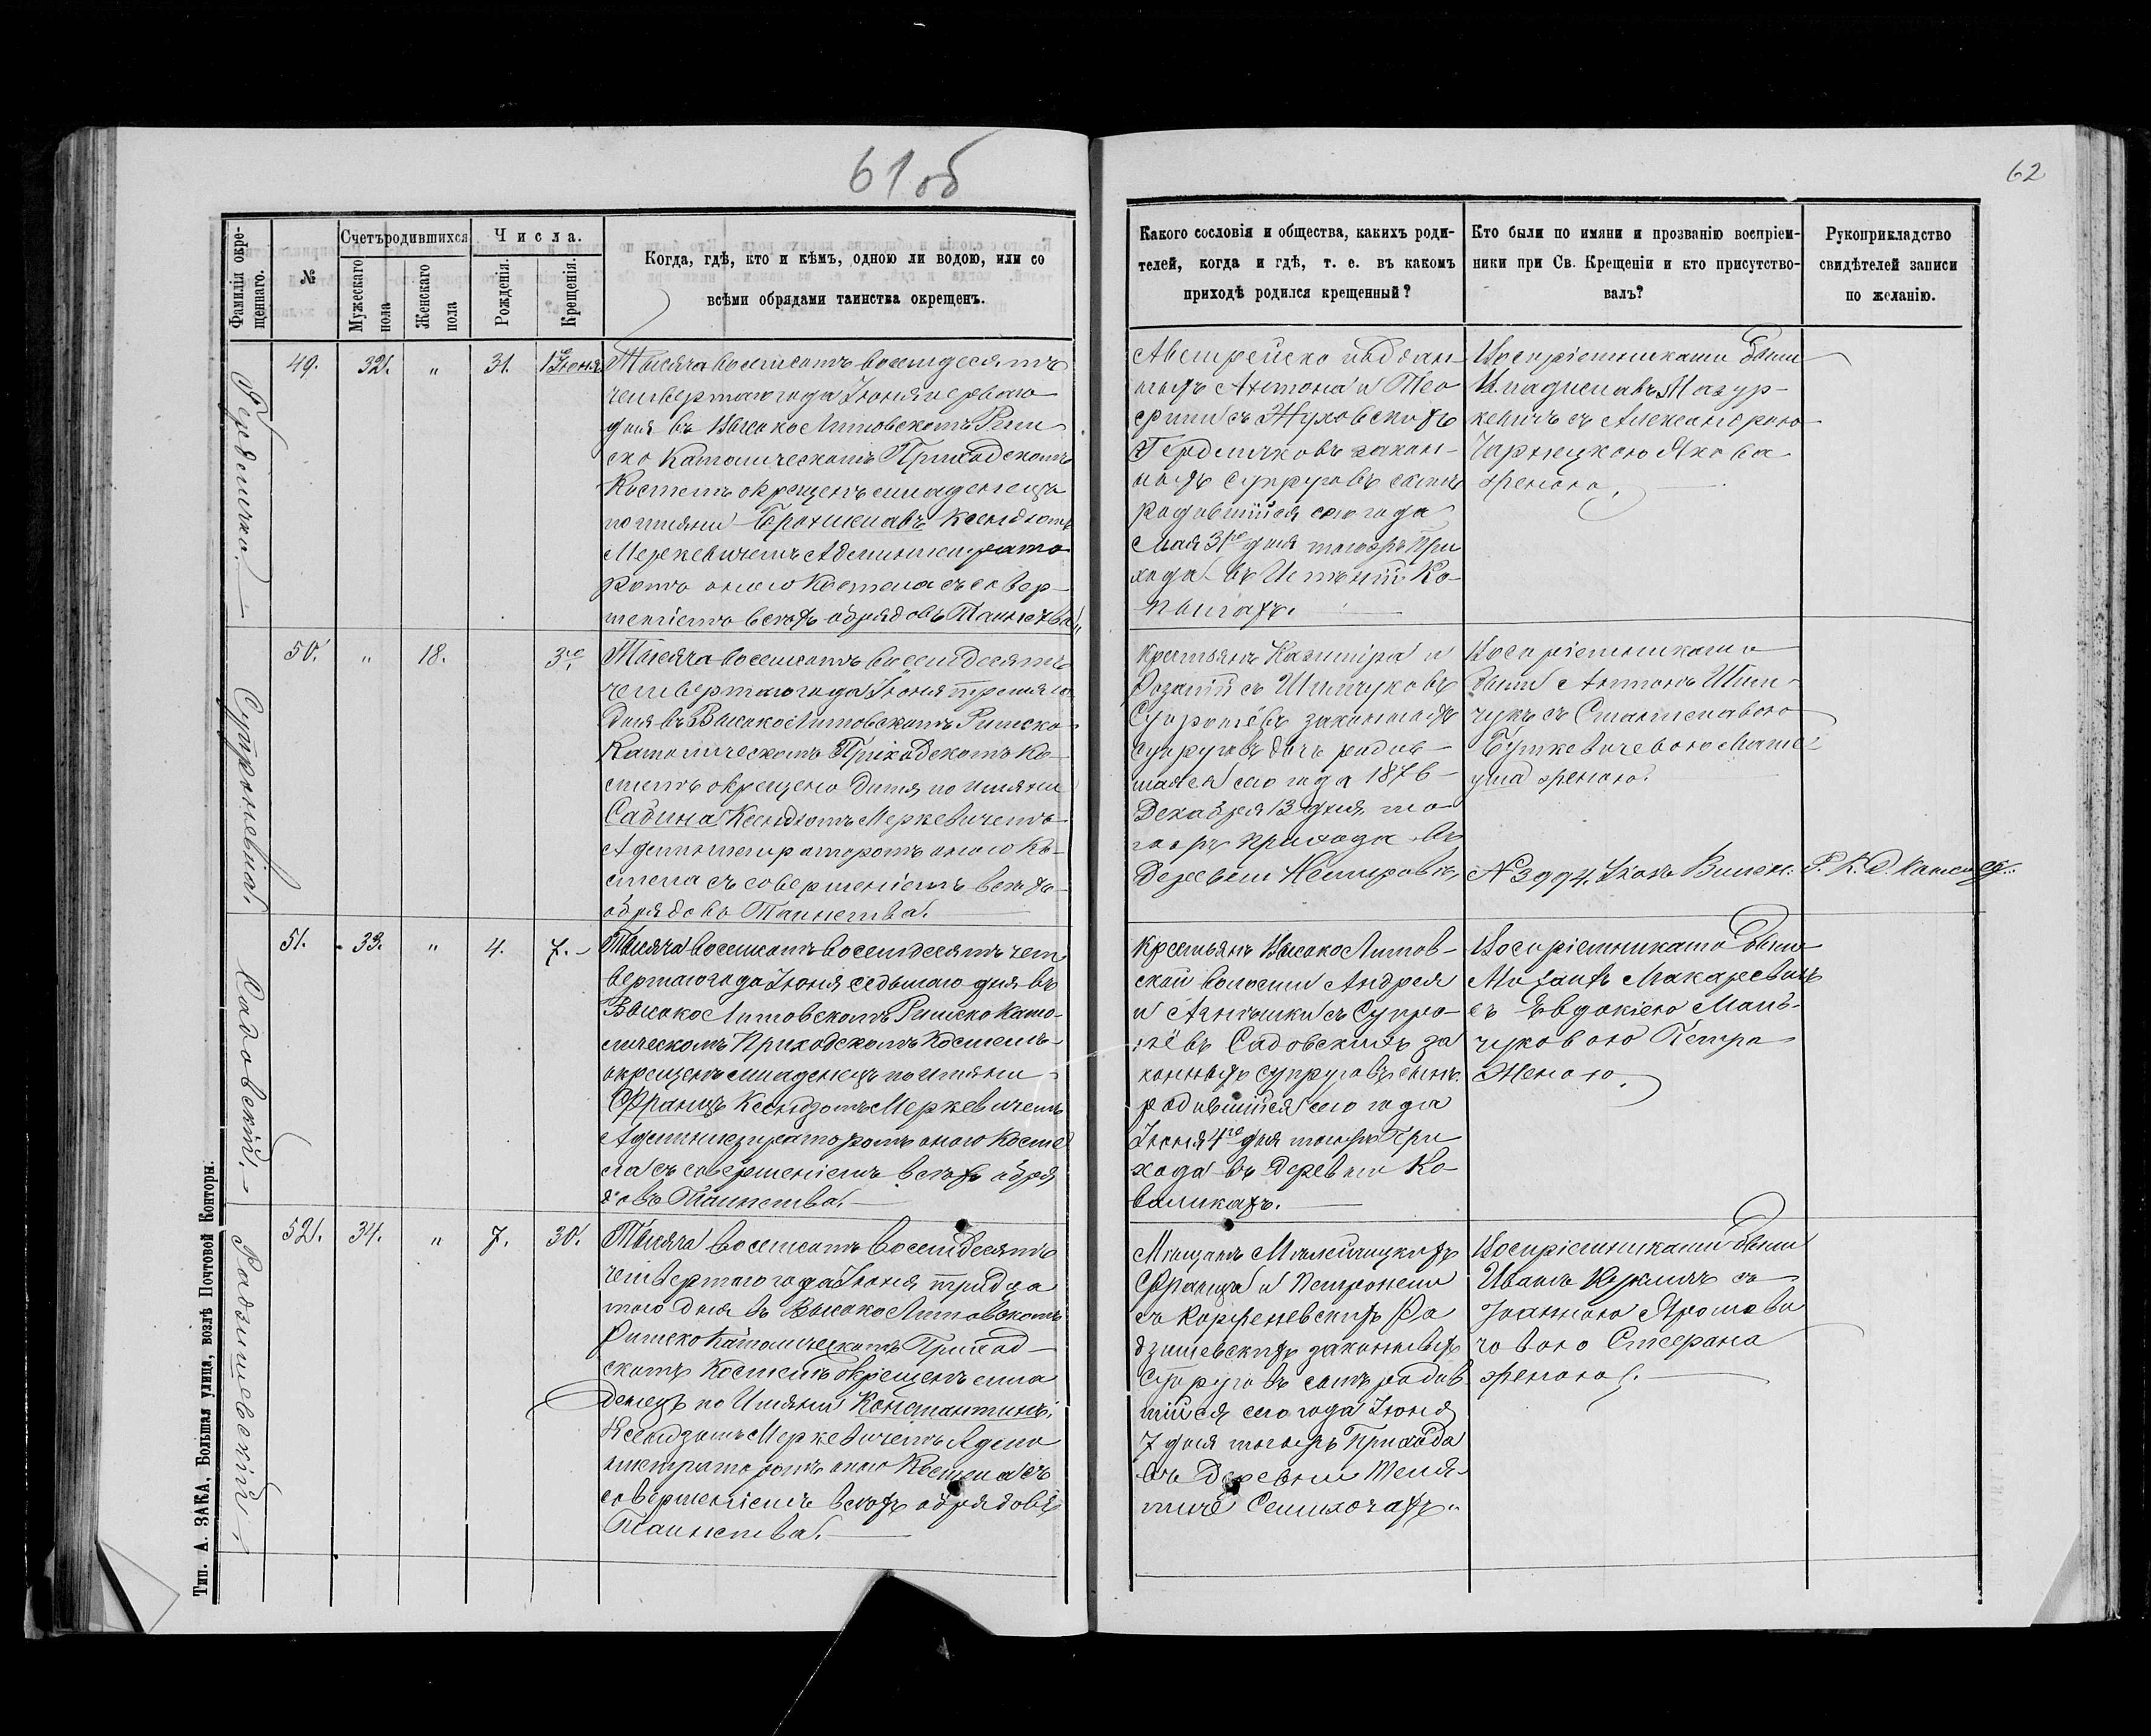 61 об
62
Фамилія окре-
щеннаго.
№
Счетъ родившихся
Мужескаго
пола
Женскаго
пола
Числа.
Рожденія.
Крещенія.
Когда, гдѣ, кто и кѣмъ, одною ли водою, или со
всѣми обрядами таинства окрещенъ.
Какого сословія и общества, какихъ роди-
телей, когда и гдѣ, т. е. въ какомъ
приходѣ родился крещенный?
Кто были по имяни и прозванію воспріем-
ники при Св. Крещеніи и кто присутство-
валъ?
Рукоприкладство
свидѣтелей записи
по желанію.
49. 32. " 31. 1е Іюня
Тысяча восемсотъ восемдесятъ
четвертаго года Іюня перваго
дня въ Высоко Литовскомъ Рим
ско Католическомъ Приходскомъ
Костелѣ окрещенъ младенецъ
по имяни Брониславъ Ксендзомъ
Меркевичемъ Администрато
ромъ оного Костела съ совер-
шеніемъ всѣхъ обрядовъ Таинства
Австрейско поддан-
ныхъ Антона и Тео
филии съ Жуковскихъ
закон-
ныхъ Супруговъ сынъ
родившійся сего года
Мая 31го дня тогожъ При
хода въ Имѣнии Ко-
пылахъ.
Воспріемниками были
Владиславъ Мазур-
кевичъ съ Александрою
Чарнецкою Якова
женою.
50. " 18. 3го
Супроневна.
Тысяча восемсотъ восемдесятъ
четвертаго года Іюня третяго
дня въ Высоко Литовскомъ Римско
Католическомъ Приходскомъ Ко-
стелѣ окрещено Дитя по имяни
Сабина Ксендзомъ Меркевичемъ
Администраторомъ оного Ко-
стела съ совершеніемъ всѣхъ
обрядовъ Таинства.
Крестьянъ Казиміра и
Розаліи съ Шимчуковъ
Супронёвъ законныхъ
супруговъ дочь родив-
шаяся сего года 1876
Декабря 13 дня то
гожъ прихода въ
Деревни Немировкѣ,
Воспріемниками
были Антонъ Шим-
чукъ съ Станиславою
Буткевичевою Мате
уша женою.
№ 3994. Указъ Виленс. Р. К. Д. Консис.
51. 33. " 4. 7.
Садовскій.
Тысяча восемсотъ восемдесятъ чет
вертаго года Іюня седьмаго дня въ
Высоко Литовскомъ Римско Като-
лическомъ Приходскомъ Костелѣ
окрещенъ младенецъ по имяни
Францъ Ксендзомъ Меркевичемъ
Администраторомъ оного Косте
ла съ совершеніемъ всѣхъ обря
довъ Таинства.
Крестьянъ Высоко Литов-
ской волости Андрея
и Агнешки съ Супро-
нёвъ Садовскихъ за
конныхъ супруговъ сынъ
родившійся сего года
Іюня 4го дня тогожъ При
хода въ деревни Ко-
валикахъ.
Воспріемниками были
Михаилъ Макаревичъ
съ Евдокіею Мань-
чуковою Петра
Женою.
52. 34. " 7. 30.
Радзишевскій.
Тысяча восемсотъ восемдесятъ
четвертаго года Іюня тридца
таго дня въ Высоко Литовскомъ
Римско Католическомъ Приход-
скомъ Костелѣ окрещенъ мла
денецъ по Имяни Константинъ
Ксендзомъ Меркевичемъ Адми
нистраторомъ оного Костела съ
совершеніемъ всѣхъ обрядовъ
Таинства.
Мѣщанъ Мѣлейчицкихъ
Франца и Петронели
съ Корженевскихъ Ра
дзишевскихъ законныхъ
супруговъ сынъ родив
шійся сего года Іюня
7 дня тогожъ Прихода
въ Деревни
Воспріемниками были
Иванъ съ
Іоанною Яромови
човою Стефана
женою.
Тип. А. ЗАКА, Большая улица, возлѣ Почтовой Конторы.